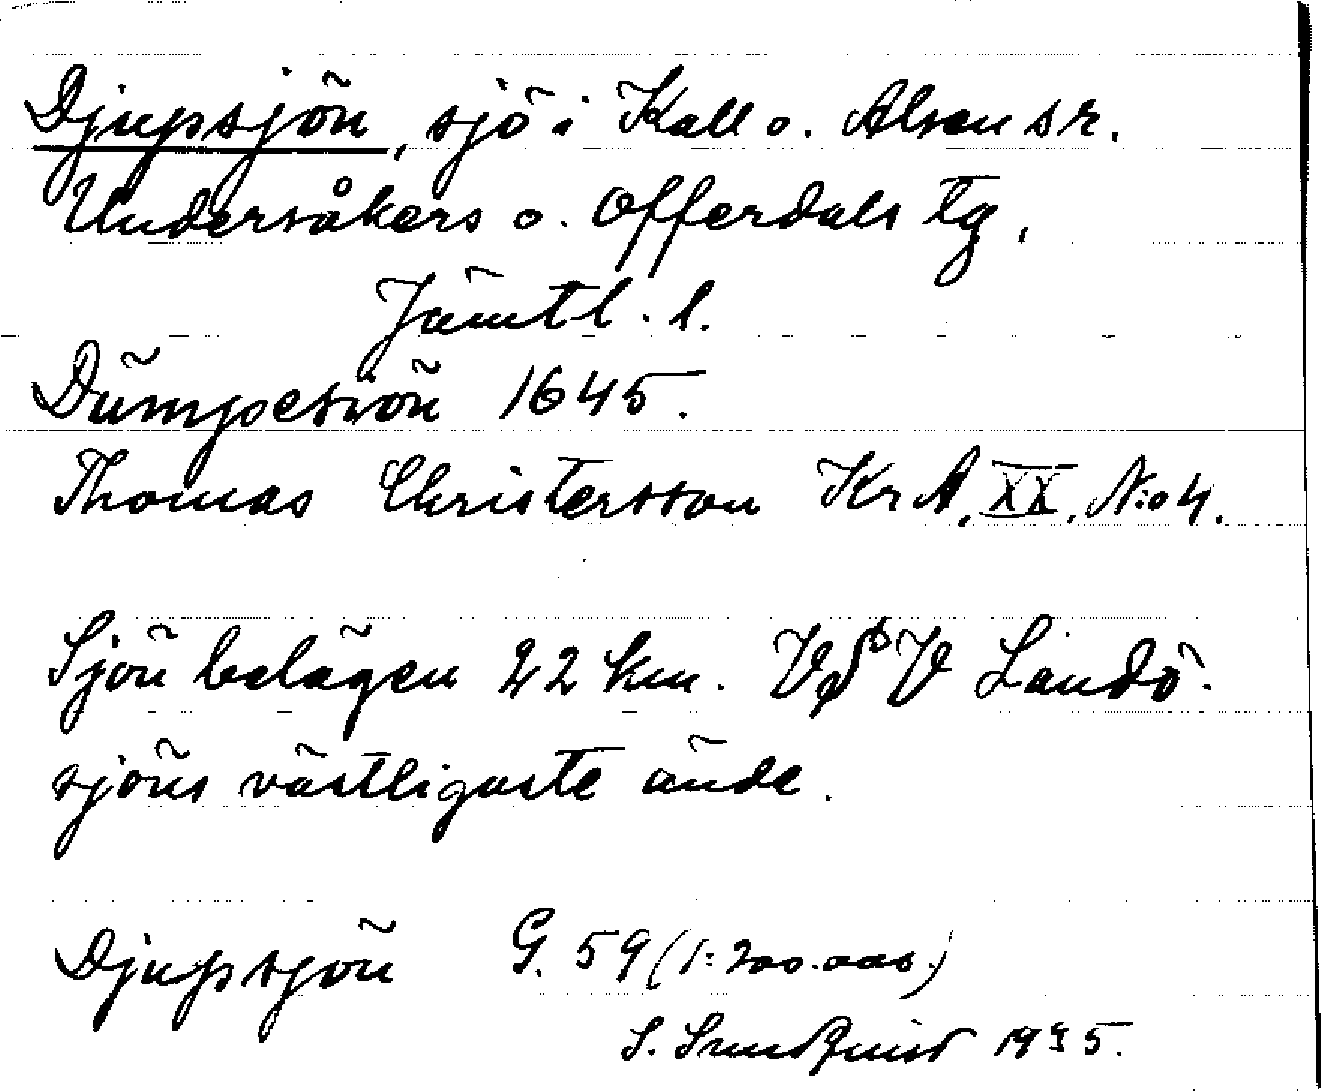 Djupsjön, sjö i Kall o. Alsen sr.
Undersåkers o. Offerdals tg,
Jämtl. l.
Dümpesiön 1645.
Thomas Christersson KrA, XX, N:o 4.
Sjön belägen 22 km. VSV Landö-
sjöns västligaste ände.
Djupsjön G. 59 (1:200.000.)
S. Sundquist 1935.